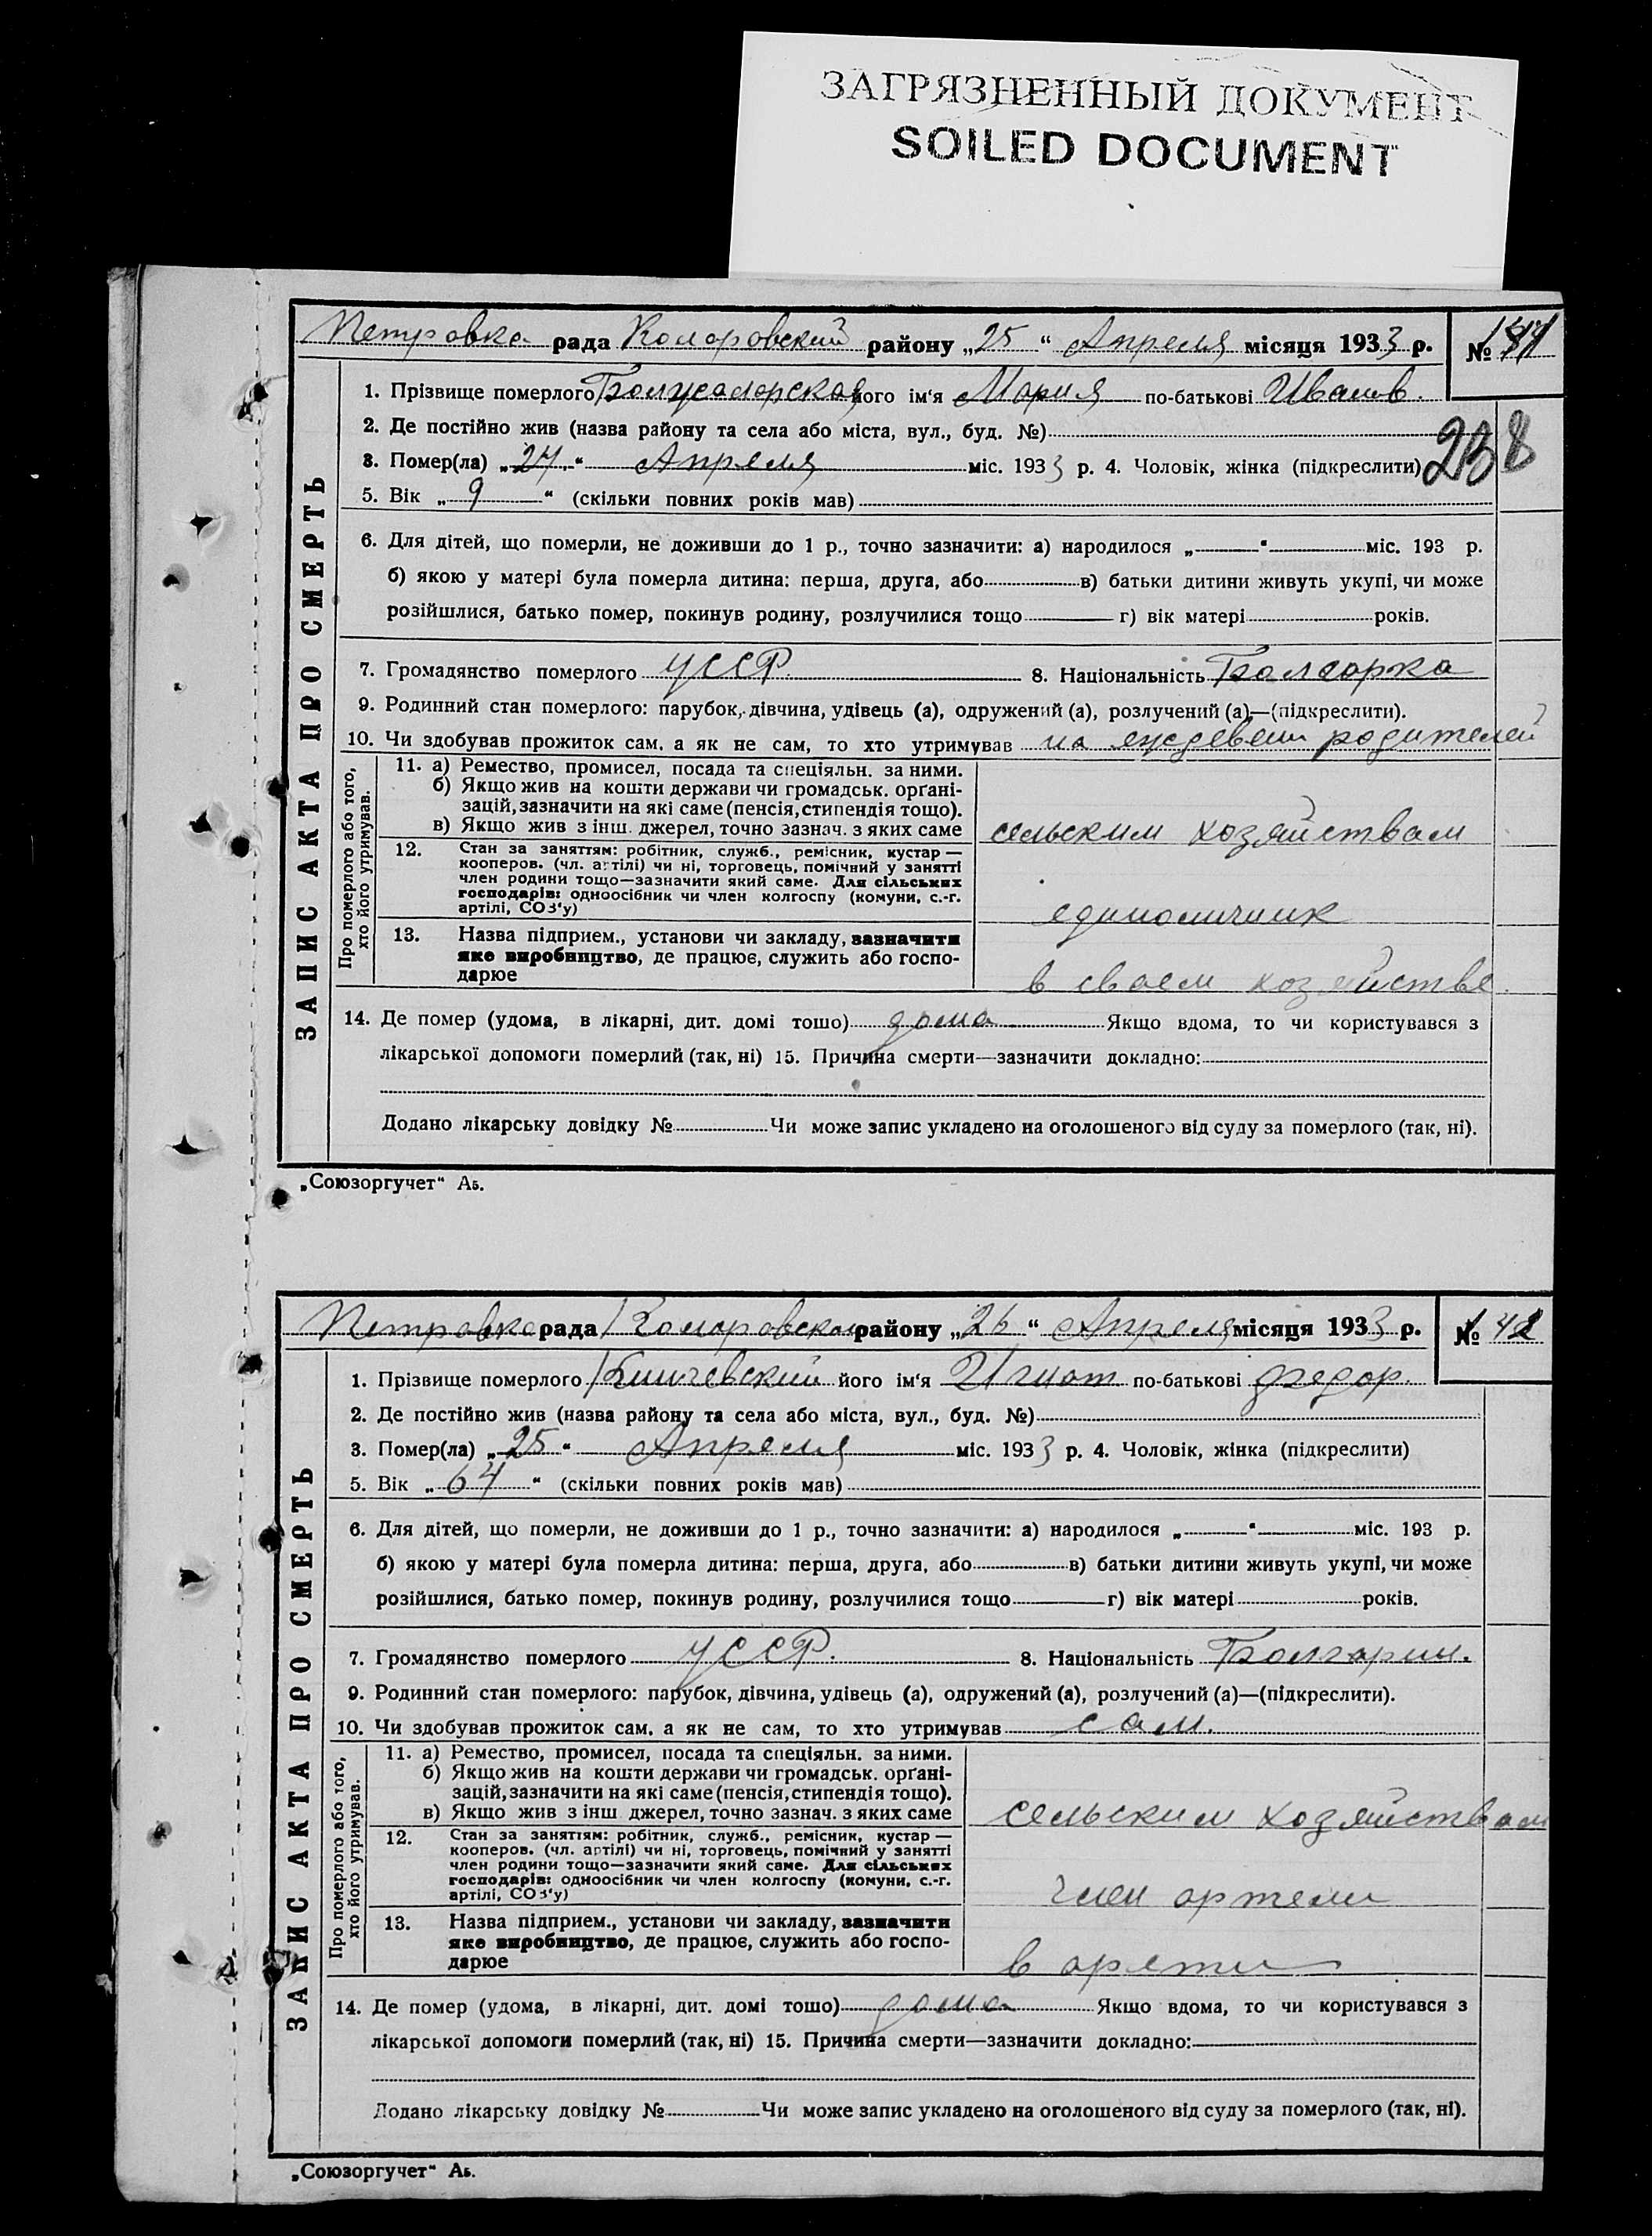 ЗАГРЯЗНЕННЫЙ ДОКУМЕНТ
SOILED DOCUMENT
Петровка рада Коларовский району „25“ Апреля місяця 1933 р. №
1. Прізвище померлого його ім‘я Мария по-батькові Иванов.
238
2. Де постійно жив (назва району та села або міста, вул., буд. №)
3. Помер(ла) „24“ Апреля міс. 1933 р. 4. Чоловік, жінка (підкреслити)
5. Вік „9“ (скільки повних років мав)
6. Для дітей, що померли, не доживши до 1 р., точно зазначити: а) народилося „ “ міс. 193 р.
б) якою у матері була померла дитина: перша, друга, або в) батьки дитини живуть укупі, чи може
розійшлися, батько помер, покинув родину, розлучилися тощо г) вік матері років.
7. Громадянство померлого УССР. 8. Національність Болгарка
9. Родинний стан померлого: парубок, дівчина, удівець (а), одружений (а), розлучений (а)—(підкреслити).
10. Чи здобував прожиток сам, а як не сам, то хто утримував на родителей
ЗАПИС АКТА ПРО СМЕРТЬ
Про померлого або того,
хто його утримував.
11. а) Ремество, промисел, посада та спеціяльн. за ними.
б) Якщо жив на кошти держави чи громадськ. орґані-
зацій, зазначити на які саме (пенсія, стипендія тощо).
в) Якщо жив з інш. джерел, точно зазнач. з яких саме
сельским хозяйствам
12. Стан за заняттям: робітник, служб., ремісник, кустар —
кооперов. (чл. артілі) чи ні, торговець, помічний у занятті
член родини тощо—зазначити який саме. Для сільських
господарів: одноосібник чи член колгоспу (комуни, с.-г.
артілі, СОЗ‘у)
единоличник
13. Назва підприєм., установи чи закладу, зазначити
яке виробництво, де працює, служить або госпо-
дарює
в своем хозяйстве
14. Де помер (удома, в лікарні, дит. домі тошо) дома Якщо вдома, то чи користувався з
лікарської допомоги померлий (так, ні) 15. Причина смерти—зазначити докладно:
Додано лікарську довідку № Чи може запис укладено на оголошеного від суду за померлого (так, ні).
„Союзоргучет“ Аб.
Петровка рада Коларовском району „26“ Апреля місяця 1933 р. № 42
1. Прізвище померлого його ім‘я Игнат по-батькові Федор.
2. Де постійно жив (назва району та села або міста, вул., буд. №)
3. Помер(ла) „25“ Апреля міс. 1933 р. 4. Чоловік, жінка (підкреслити)
5. Вік „64“ (скільки повних років мав)
6. Для дітей, що померли, не доживши до 1 р., точно зазначити: а) народилося „ “ міс. 193 р.
б) якою у матері була померла дитина: перша, друга, або в) батьки дитини живуть укупі, чи може
розійшлися, батько помер, покинув родину, розлучилися тощо г) вік матері років.
7. Громадянство померлого УССР. 8. Національність Болгарин.
9. Родинний стан померлого: парубок, дівчина, удівець (а), одружений (а), розлучений (а)—(підкреслити).
10. Чи здобував прожиток сам, а як не сам, то хто утримував сам.
ЗАПИС АКТА ПРО СМЕРТЬ
Про померлого або того,
хто його утримував.
11. а) Ремество, промисел, посада та спеціяльн. за ними.
б) Якщо жив на кошти держави чи громадськ. орґані-
зацій, зазначити на які саме (пенсія, стипендія тощо).
в) Якщо жив з інш. джерел, точно зазнач. з яких саме
сельским хозяйствам
12. Стан за заняттям: робітник, служб., ремісник, кустар —
кооперов. (чл. артілі) чи ні, торговець, помічний у занятті
член родини тощо—зазначити який саме. Для сільських
господарів: одноосібник чи член колгоспу (комуни, с.-г.
артілі, СОЗ‘у)
член артели
13. Назва підприєм., установи чи закладу, зазначити
яке виробництво, де працює, служить або госпо-
дарює
в
14. Де помер (удома, в лікарні, дит. домі тошо) дома Якщо вдома, то чи користувався з
лікарської допомоги померлий (так, ні) 15. Причина смерти—зазначити докладно:
Додано лікарську довідку № Чи може запис укладено на оголошеного від суду за померлого (так, ні).
„Союзоргучет“ Аб.